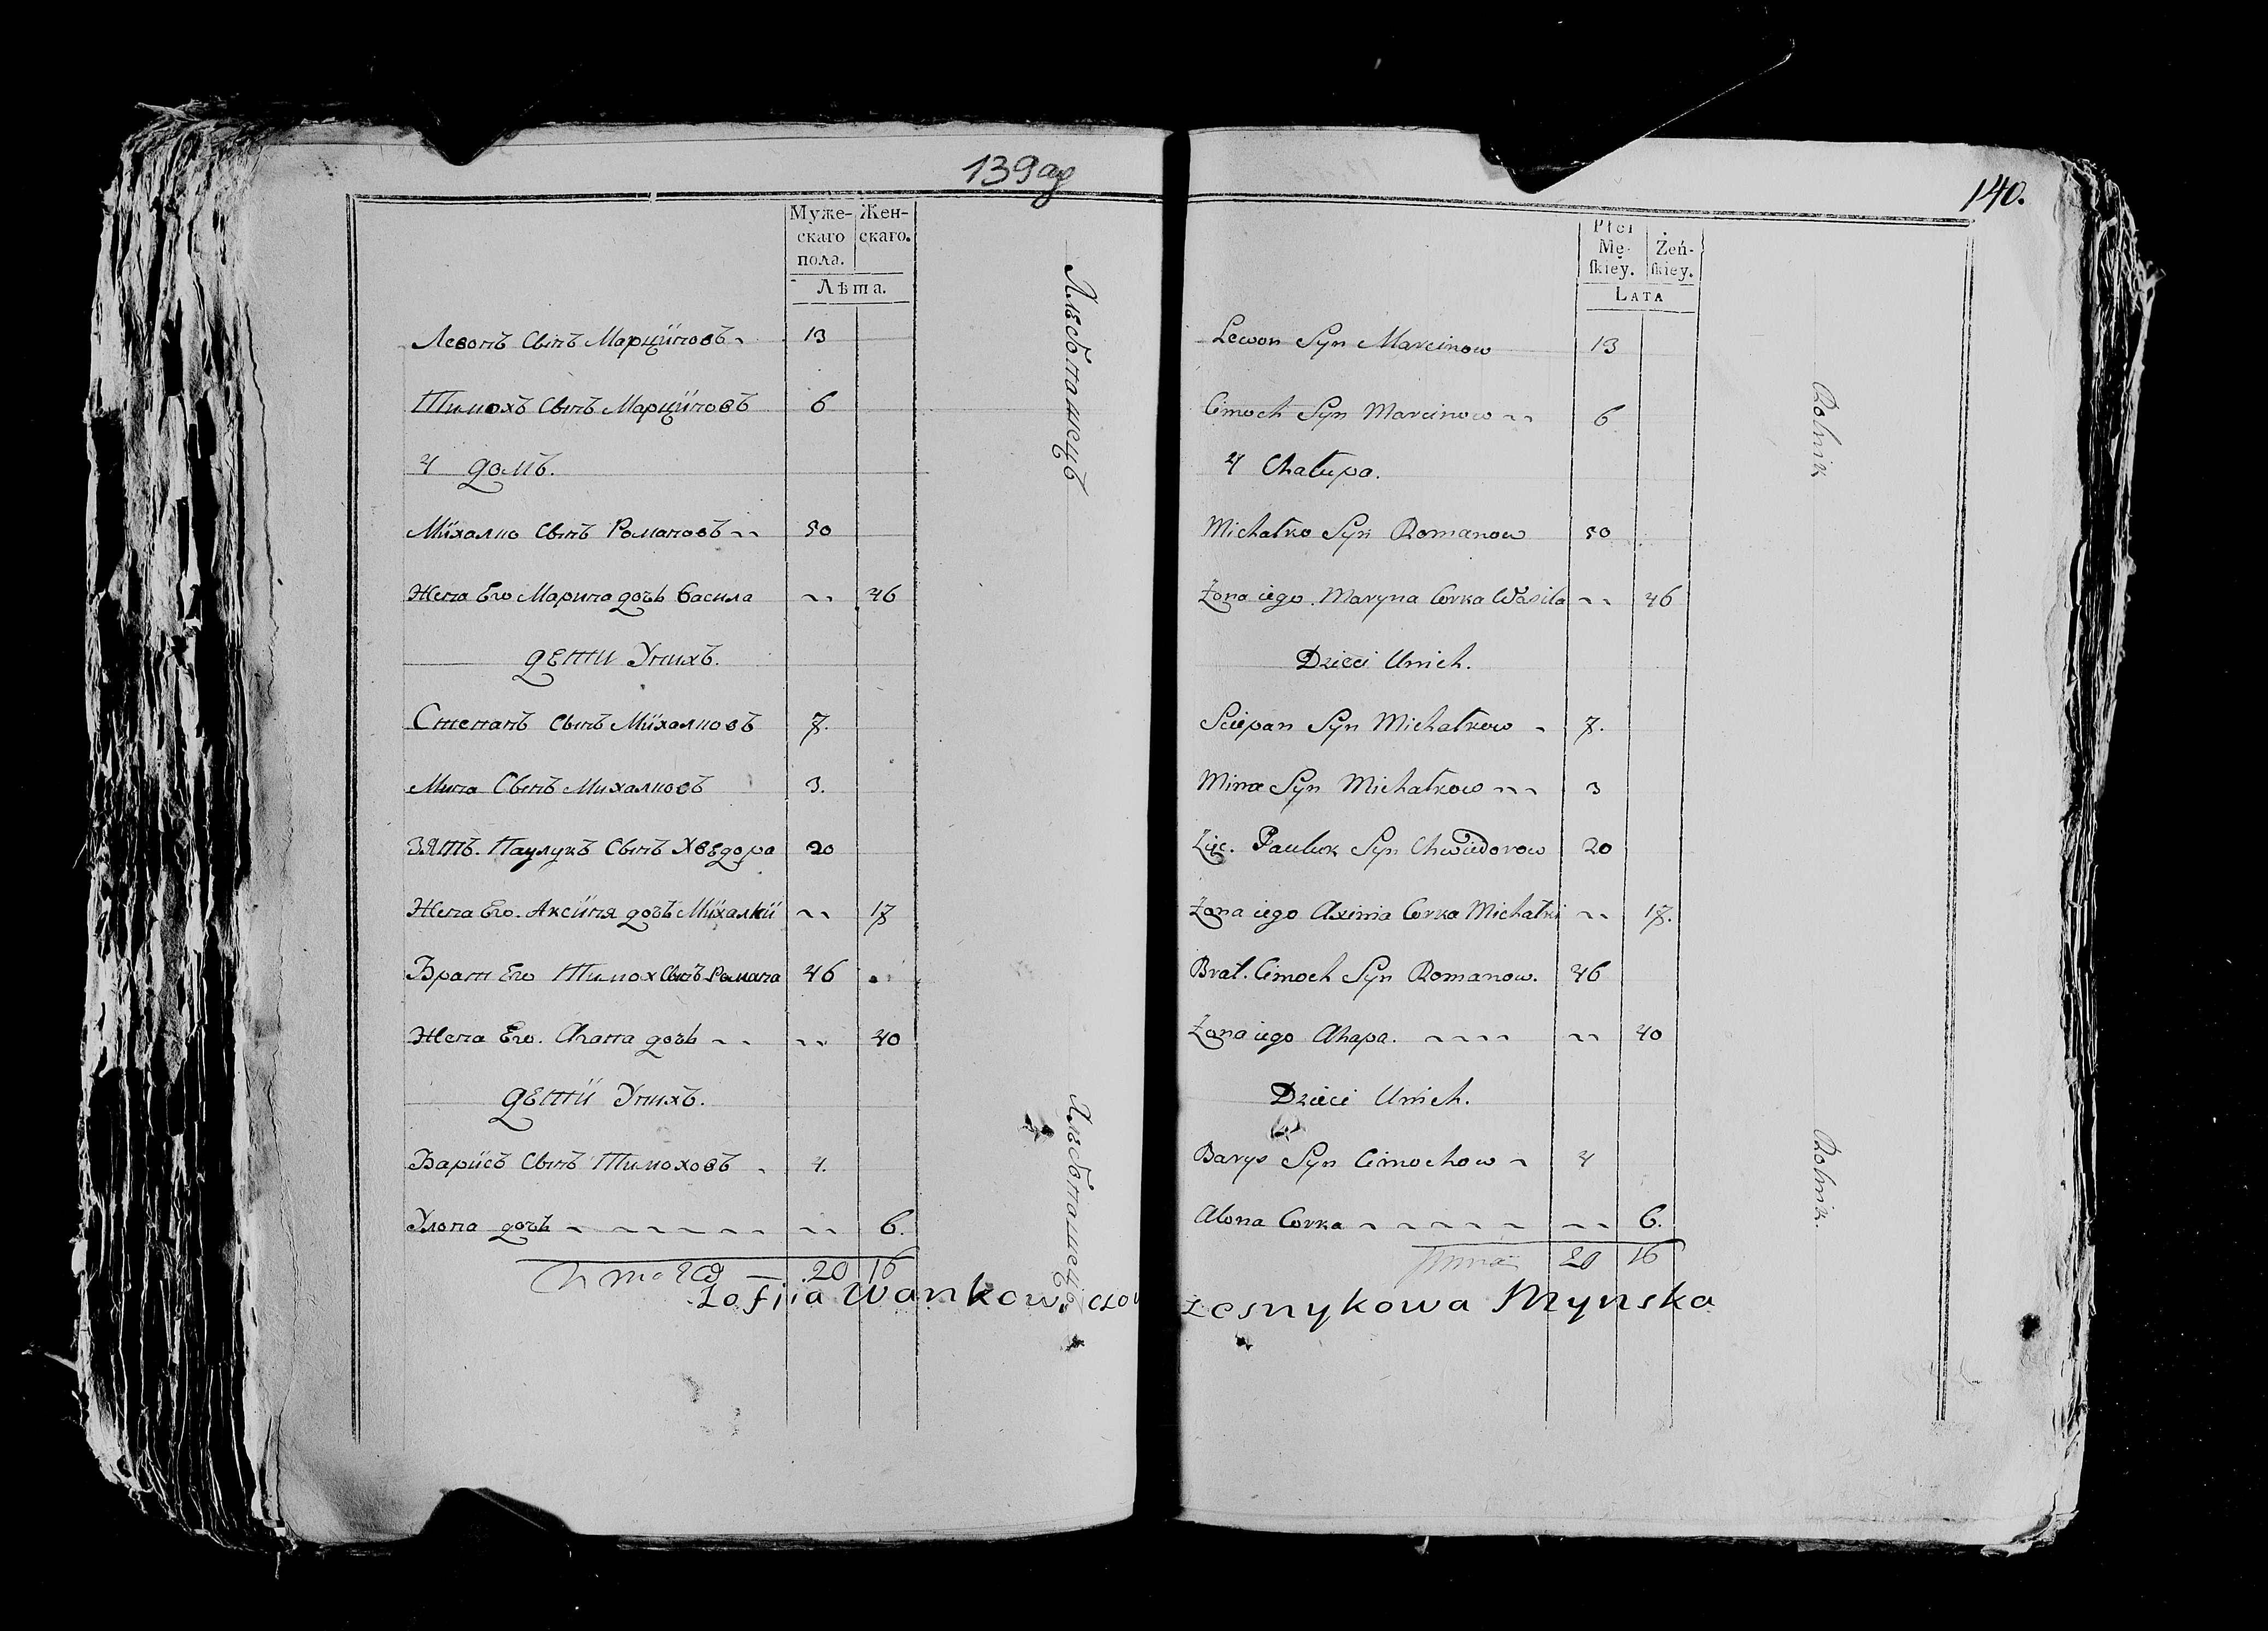 139об
Муже-
скаго
пола.
Жен-
скаго.
Лѣта.
Левонъ Сынъ Марцїновъ 13
Тимохъ Сынъ Марцїновъ 6
4 домъ.
Мїхалко Сынъ Романовъ 50
Жена Его Марина дочь Васила 46
Дети Унихъ.
Степанъ Сынъ Мїхалковъ 7.
Мина Сынъ Михалковъ 3.
Зять. Паулукъ Сынъ Хвѣдора 20
Жена Его. Аксїня дочь Мїхалкї 17
Брат Его Тимох Сынъ Романа 46
Жена Его. Агапа дочь 40
Детї Унихъ.
Барїсъ Сынъ Тимоховъ 4.
Улона дочь 6.
20 16
Хлѣбопашецъ
Хлѣбопашецъ
140.
Płci
Mę-
skiey.
Żeń-
skiey.
LATA
Lewon Syn Marcinow 13
Cimoch Syn Marcinow 6
4 Chałupa.
Michałko Syn Romanow 50
Żona iego. Maryna Corka Wasila 46
Dzieci Unich.
Sciepan Syn Michałkow 7.
Mina Syn Michałkow 3
Zięc. Pauluk Syn Chwiedorow 20
Żona iego Axinia Corka Michałki 17.
Brat. Cimoch Syn Romanow. 46
Żona iego Ahapa. 40
Dzieci Unich.
Barys Syn Cimochow 4
Alona Corka 6.
Summa 20 16
Rolnik
Rolnik.
Zofiia Wankowiczowa
Łesnykowa Mynska